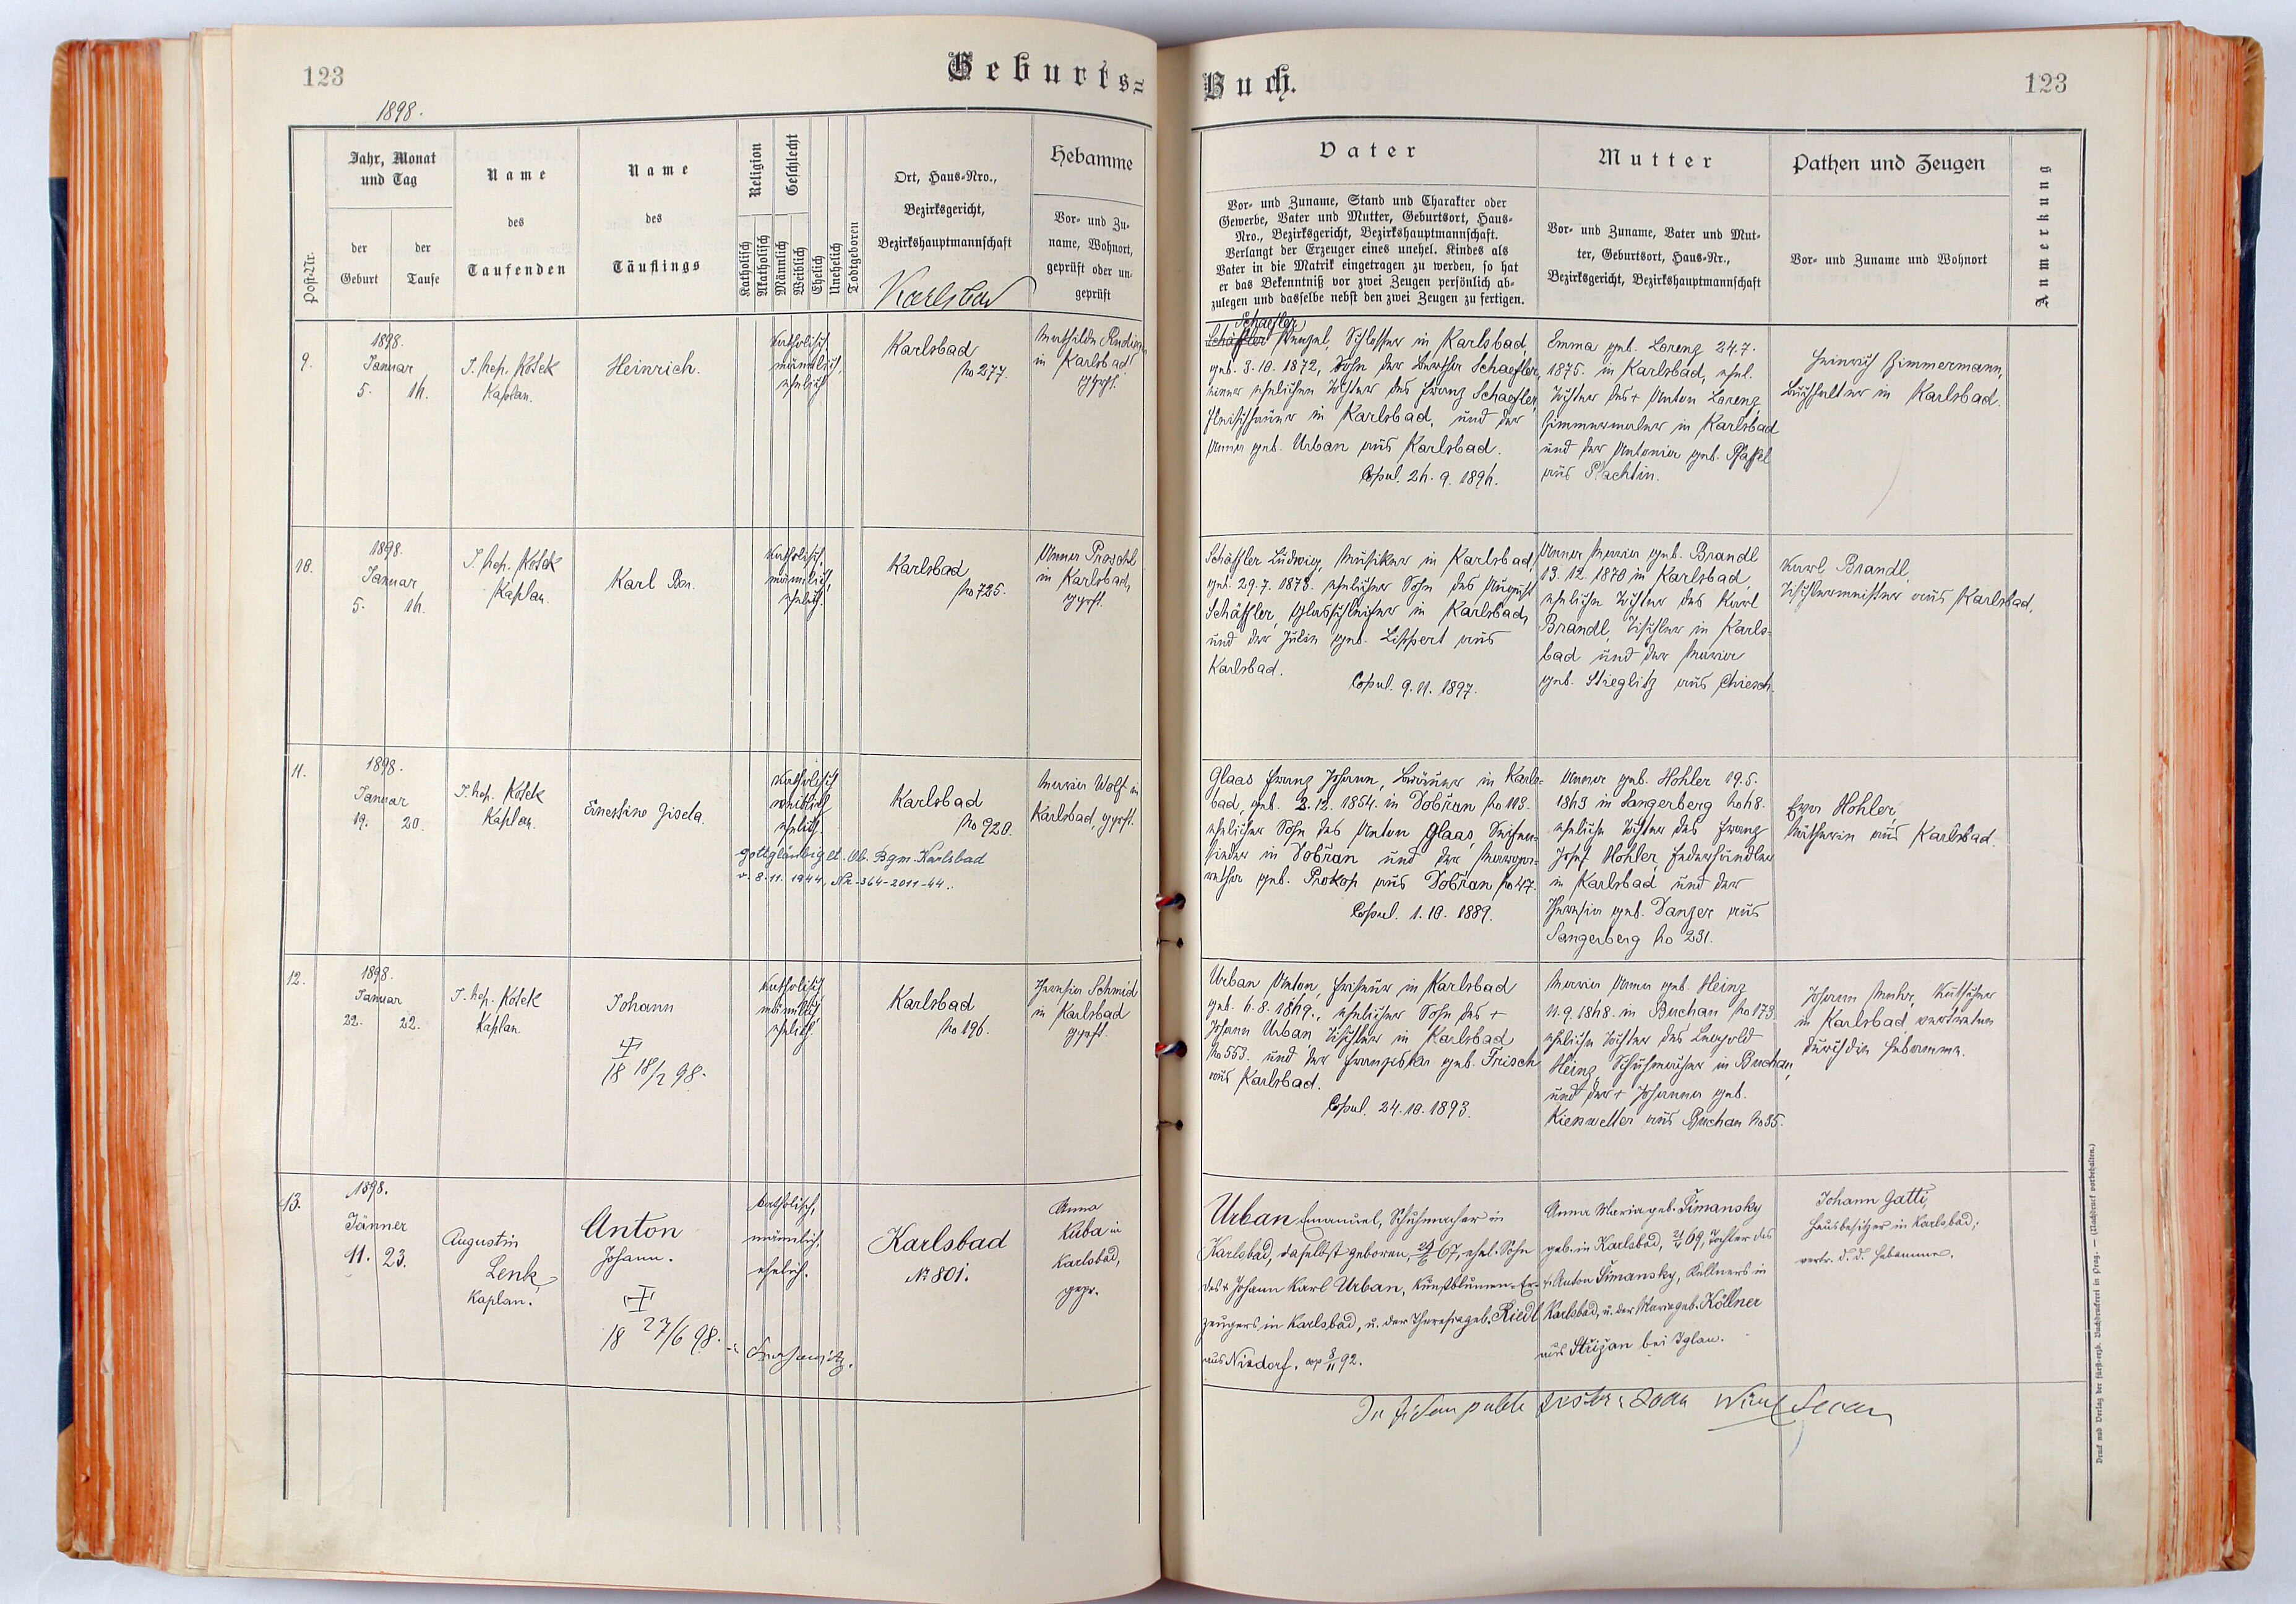 123
Geburts=
1898.
Post-Nr.
Jahr, Monat
und Tag
der
Geburt
der
Taufe
Name
des
Taufenden
Name
des
Täuflings
Religion
Geschlecht
Katholisch
Akatholisch
Männlich
Weiblich
Ehelich
Unehelich
Todtgeboren
Ort, Haus-Nro.,
Bezirksgericht,
Bezirkshauptmannschaft
Karlsbad
Hebamme
Vor- und Zu-
name, Wohnort,
geprüft oder un-
geprüft
9.
1898.
Januar
5. 16.
J. Nep. Kosek
Kaplan.
Heinrich.
katholisch,
männlich,
ehelich
Karlsbad
No 277.
Mathilde
in Karlsbad
geprft.
10.
1898.
Januar
5. 16.
J. Nep. Kosek
Kaplan.
Karl
katholisch,
männlich,
ehelich.
Karlsbad
No 725.
Anna Proschl
in Karlsbad,
geprft.
11.
1898.
Januar
19. 20.
J. Nep. Kosek
Kaplan.
Ernestine Gisela.
katholisch
weiblich
ehelich.
Karlsbad
No 920.
Maria Wolf in
Karlsbad, geprft.
gottgläubig lt. Ob. Bgm. Karlsbad
v. 8.11. 1944, Nr. 364-2011-44.
12.
1898.
Januar
22. 22.
J. Nep. Kosek
Kaplan
Johann
18 18/2 98.
katholisch
männlich
ehelich
Karlsbad
No 196.
Theresia Schmid
in Karlsbad
geprft.
13.
1898.
Jänner
11. 23.
Augustin
Lenk,
Kaplan.
Anton
Johann.
18 27/6 98.
katholisch,
männlich,
ehelich.
Karlsbad
No 801.
Anna
Kuba in
Karlsbad,
gepr.
Buch.
123
Vater
Vor- und Zuname, Stand und Charakter oder
Gewerbe, Vater und Mutter, Geburtsort, Haus-
Nro., Bezirksgericht, Bezirkshauptmannschaft.
Verlangt der Erzeuger eines unehel. Kindes als
Vater in die Matrik eingetragen zu werden, so hat
er das Bekenntniß vor zwei Zeugen persönlich ab-
zulegen und dasselbe nebst den zwei Zeugen zu fertigen.
Mutter
Vor- und Zuname, Vater und Mut-
ter, Geburtsort, Haus-Nr.,
Bezirksgericht, Bezirkshauptmannschaft
Pathen und Zeugen
Vor- und Zuname und Wohnort
Anmerkung
Schaefler
Schäffler Wenzel, Schlosser in Karlsbad,
geb. 3.10. 1872, Sohn der Bertha Schaefler,
einer ehelichen Tochter des Franz Schaefler,
Fleischhauer in Karlsbad, und der
Anna geb. Urban aus Karlsbad.
Copul. 24. 9. 1896.
Emma geb. Lorenz 24.7.
1875. in Karlsbad, ehel.
Tochter des + Anton Lorenz,
Zimmermaler in Karlsbad
und der Antonia geb. Pfaffel
aus Plachtin.
Heinrich Zimmermann,
Buchhalter in Karlsbad.
Schäffler Ludwig, Musiker in Karlsbad,
geb. 29.7. 1873. ehelicher Sohn des August
Schäffler, Glasschleifer in Karlsbad,
und der Julie geb. Lippert aus
Karlsbad.
Copul. 9. 11. 1897.
Anna Maria geb. Brandl
13. 12. 1870 in Karlsbad,
eheliche Tochter des Karl
Brandl, Tischler in Karls-
bad und der Maria
geb. Stieglitz aus Chiesch.
Karl Brandl,
Tischlermeister aus Karlsbad.
Glaas Franz Johann, Bräuer in Karls-
bad, geb. 2.12. 1854. in Dobřan No 113.
ehelicher Sohn des Anton Glaas, Seifen-
sieder in Dobřan und der Marga-
retha geb. Prokop aus Dobřan No 47.
Copul. 1. 10. 1889.
Anna geb. Hohler 19.5.
1863 in Sangerberg No 68.
eheliche Tochter des Franz
Josef Hohler, Federhändler
in Karlsbad und der
Theresia geb. Danzer aus
Sangerberg No 231.
Eva Hohler,
Näherin aus Karlsbad.
Urban Anton, Friseur in Karlsbad
geb. 6.8. 1869., ehelicher Sohn des +
Johann Urban, Tischler in Karlsbad
No 553. und der Franziska geb. Frisch
aus Karlsbad.
Copul. 24. 10. 1893.
Maria Anna geb. Heinz
11.9. 1868. in Buchau No 173.
eheliche Tochter des Leopold
Heinz, Schuhmacher in Buchau,
und der + Johanna geb.
Kieswetter aus Buchau No 35.
Johann Mahr, Kutscher
in Karlsbad, vertreten
durch die Hebamme.
Urban Emanuel, Schuhmacher in
Karlsbad, daselbst geboren, 67, ehel. Sohn
des + Johann Karl Urban, Kunstblumen-Er-
zeugers in Karlsbad, u. der Theresia geb. Riedl
aus Nixdorf. cop 8/11 92.
Anna Maria geb. Šimansky
geb. in Karlsbad, 69, Tochter des
+ Anton Šimansky, Kellners in
Karlsbad, u. der Maria geb. Köllner
aus Střižan bei Iglau.
Johann Gatti,
Hausbesitzer in Karlsbad;
vertr. d. d. Hebamme.
Druck und Verlag der fürst-erzb. Buchdruckerei in Prag. — (Nachdruck vorbehalten.)